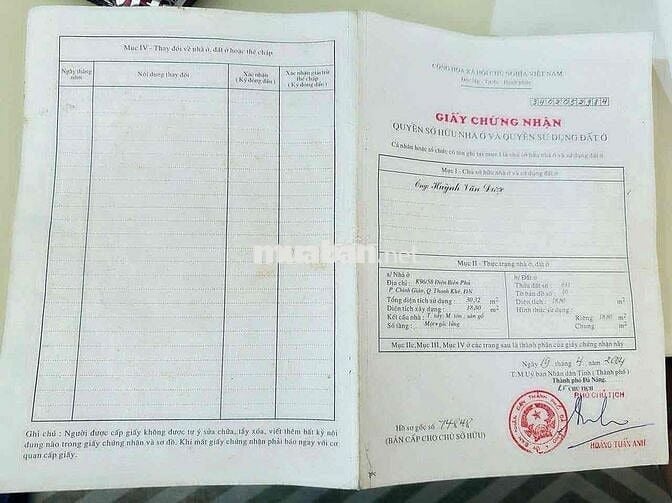 Mục IV - Thay đổi về nhà ở, đất ở hoặc thế chấp
Ngày tháng năm
Nội dung thay đổi
Xác nhận
( Ký đóng dấu)
Xác nhận giải trừ thế chấp
( Ký đóng dấu)
Ghi chú : Người được cấp giấy không được tự ý sửa chữa, tẩy xóa, viết thêm bất kỳ nội
dung nào trong giấy chứng nhận và sơ đồ. Khi mất giấy chứng nhận phải báo ngay với cơ
quan cấp giấy.
CỘNG HÒA XÃ HỘI CHỦ NGHĨA VIỆT NAM
Độc lập - Tự do - Hạnh phúc
GIẤY CHỨNG NHẬN
QUYỀN SỞ HỮU NHÀ Ở VÀ QUYỀN SỬ DỤNG ĐẤT Ở
Cá nhân hoặc tổ chức có tên ghi tại mục I là chủ sở hữu nhà ở và sử dụng đất ở.
Mục I - Chủ sở hữu nhà ở và sử dụng đất ở
Ông: Huỳnh Văn
muaban.net
Mục II - Thực trạng nhà ở, đất ở
a/ Nhà ở
Địa chỉ : K96/58 Điện Biên Phủ
P. Chính Gián, Q. Thanh Khê, ĐN
Tổng diện tích sử dụng : 30,32 m2
Diện tích xây dựng : 18,80 m2
Kết cấu nhà : T. xây, M. tôn, sàn gỗ
Số tầng : Một + gác lửng
b/ Đất ở
Thửa đất số :
Tờ bản đồ số : 10
Diện tích : 18,80 m2
Hình thức sử dụng:
Riêng : 18,80 m2
Chung m2
Mục IIc, Mục III, Mục IV ở các trang sau là thành phần của giấy chứng nhận này
Ngày 19 tháng 4 năm 2004
T.M Uỷ ban Nhân dân Tỉnh ( Thành phố )
Thành phố Đà Nẵng
CHỦ TỊCH
PHÓ CHỦ TỊCH
Hồ sơ gốc số : 74848
(BẢN CẤP CHO CHỦ SỞ HỮU)
HOÀNG TUẤN ANH